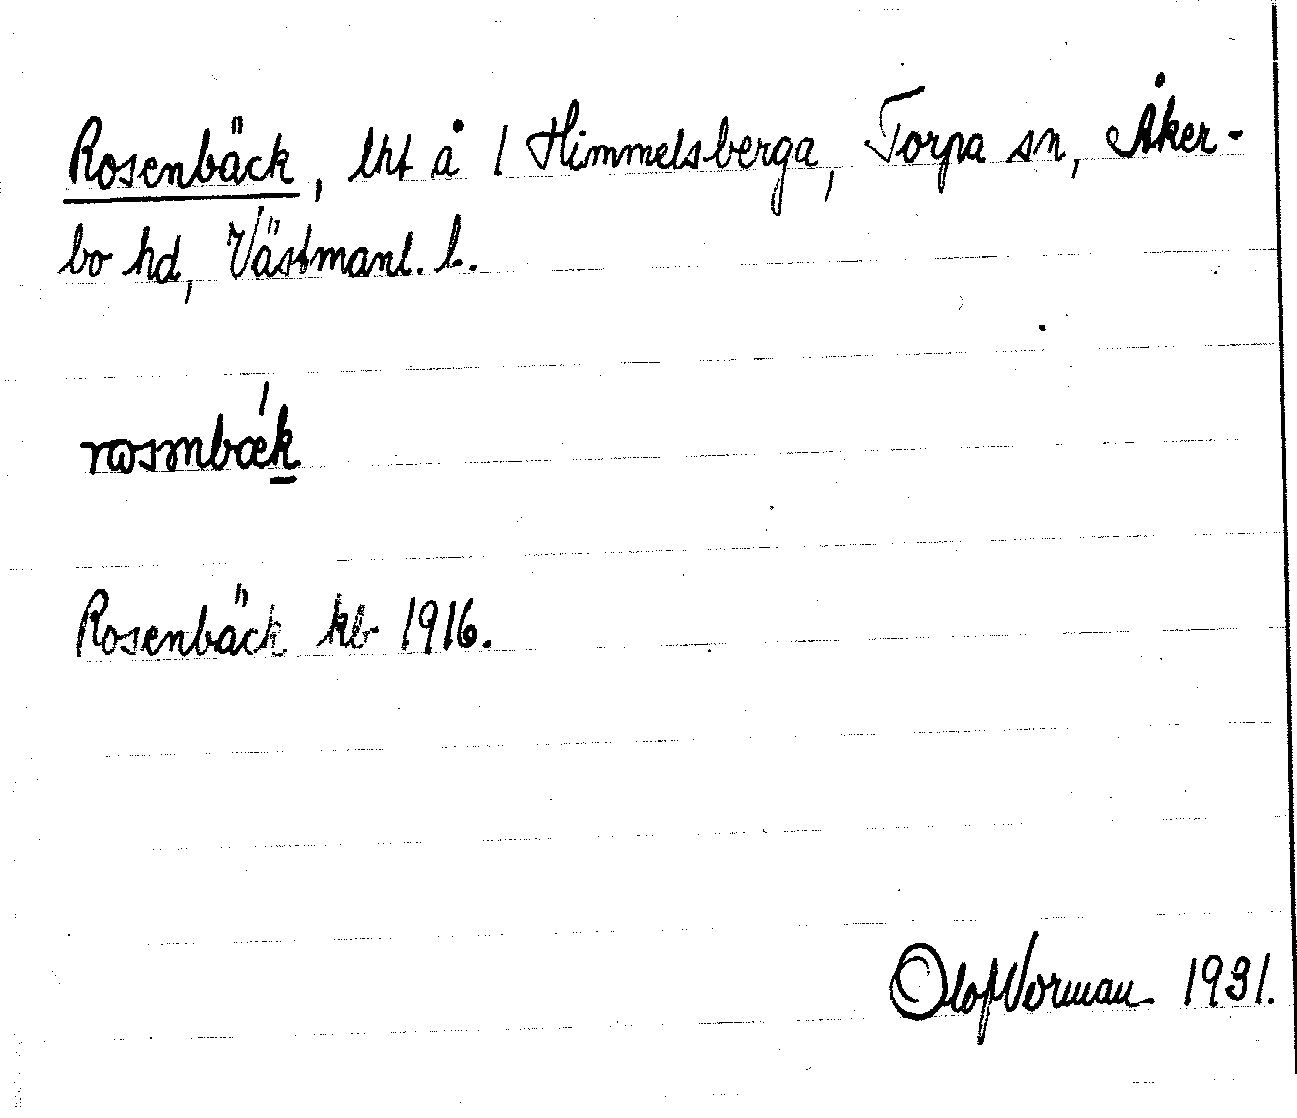 Rosenbäck, lht å 1 Himmelsberga, Torpa sn, Åker-
bo hd, Västmanl. l.
Rosenbäck kb 1916.
Olof Norman 1931.